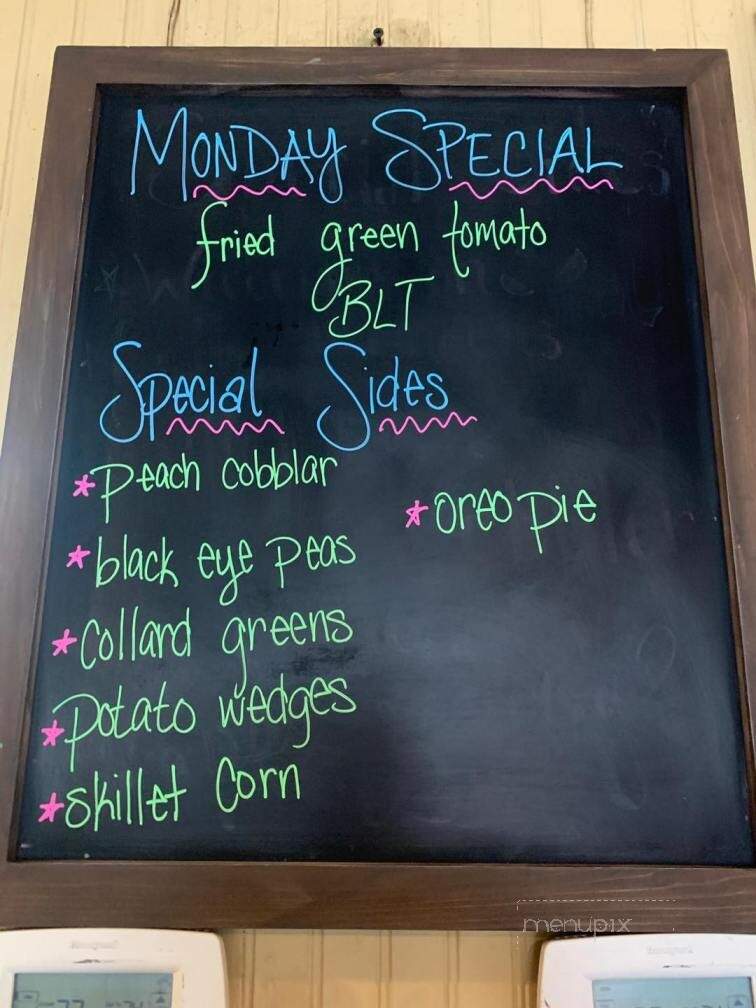 MONDAY SPECIAL
fried green tomato
BLT
Special Sides
*peach cobblar
*oreo pie
*black eye peas
*collard greens
*potato wedges
*skillet corn
menupix
Honeywell